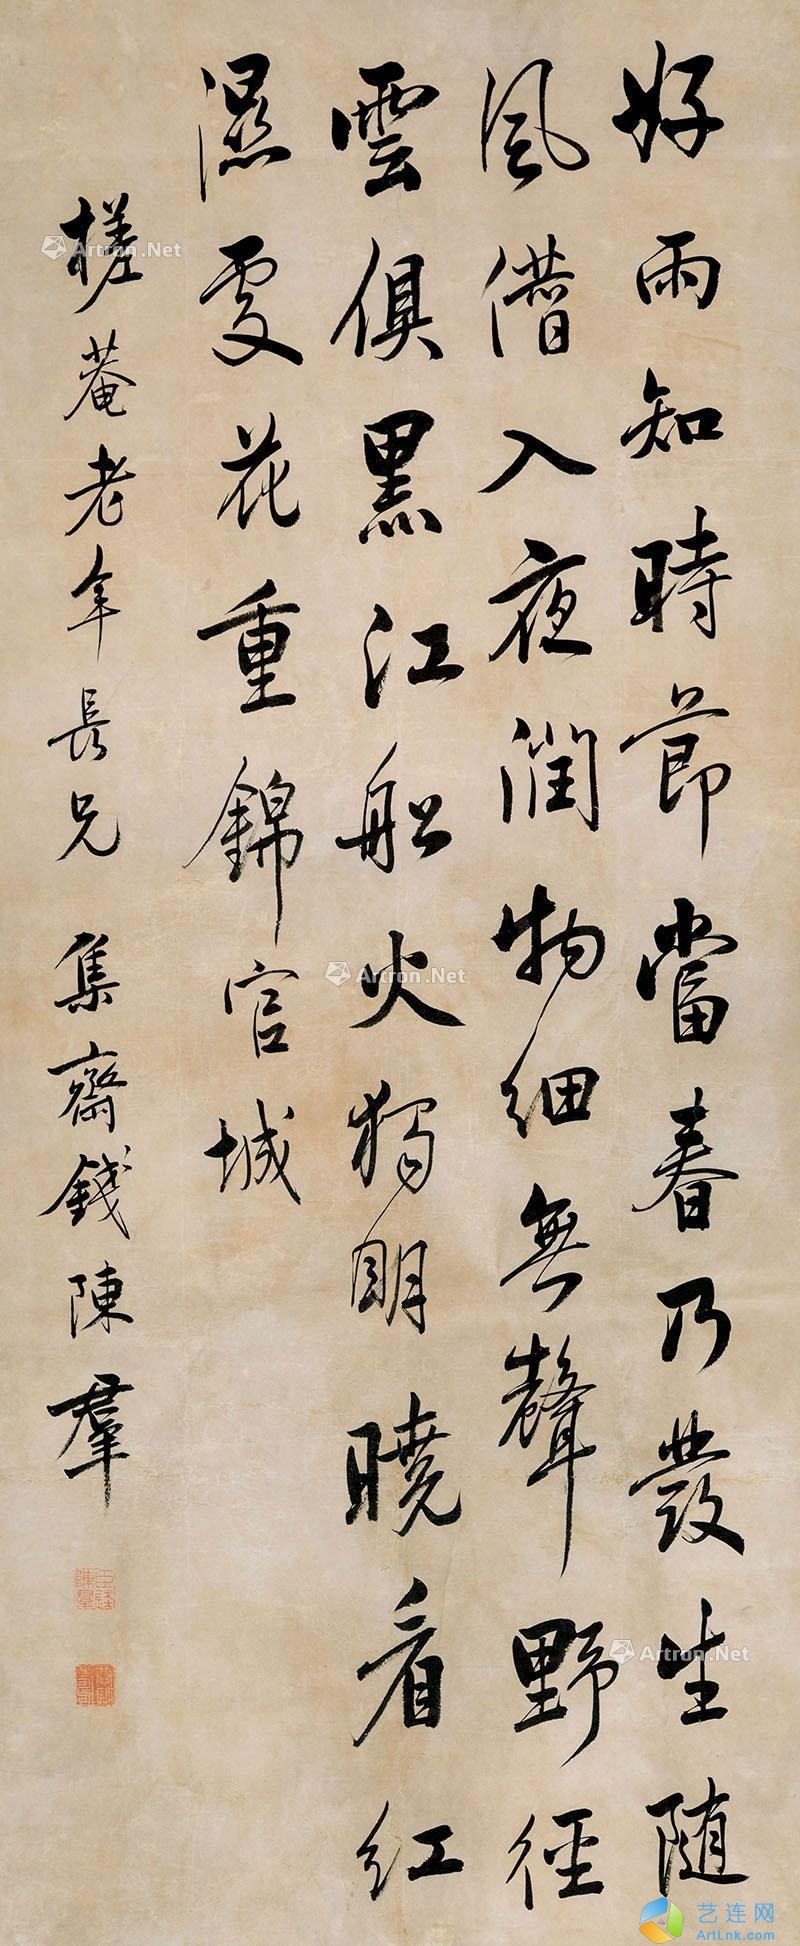 好雨知時節當春乃發生随
風潛入夜潤物細無聲野徑
雲俱黑江船火獨明曉看紅
濕處花重錦官城
槎菴老年長兄 集齋錢陳羣
Artron.Net
Artron.Net
Artron.Net
艺连网
ArtLnk.com